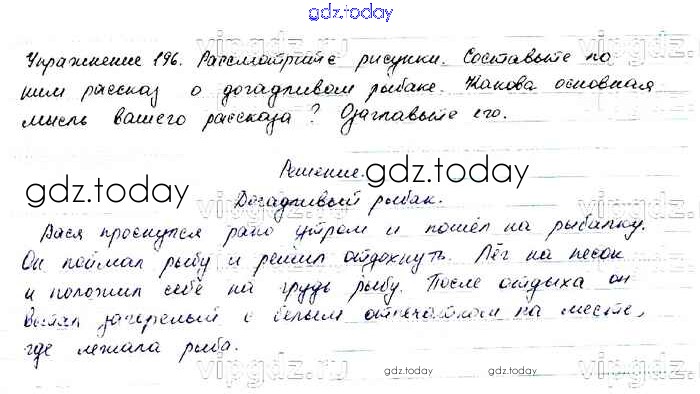 gdz.today
Упражнение 196. Рассмотрите рисунки. Составьте по
ним рассказ о догадливом рыбаке. Какова основная
мысль вашего рассказа? Озаглавьте его.
Решение.
gdz.today
gdz.today
Догадливый рыбак.
Вася проснулся рано утром и пошёл на рыбалку.
Он поймал рыбу и решил отдохнуть. Лёг на песок
и положил себе на грудь рыбу. После отдыха он
встал загорелый с белым отпечатком на месте,
где лежала рыба.
gdz.today
gdz.today
vipgdz.ru